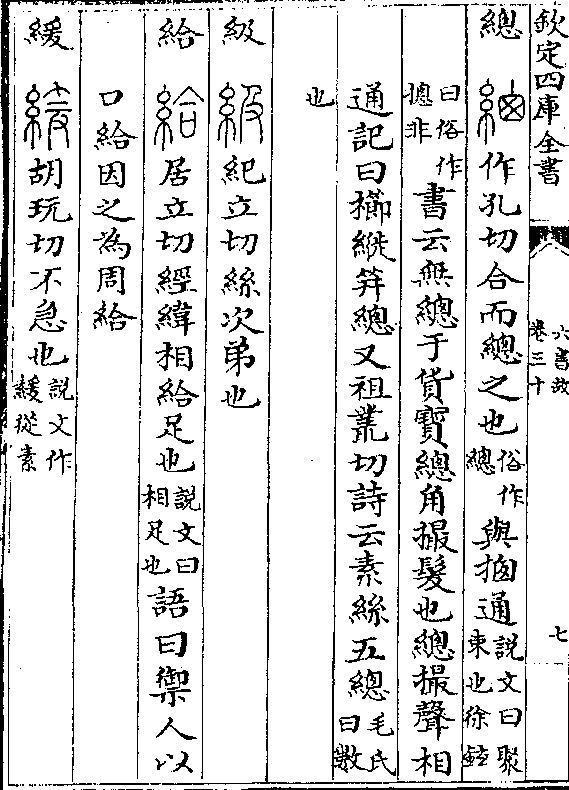 欽定四庫全書
六書故
卷三十
七
總 作孔切合而總之也俗作總與通說文曰聚束也徐鉉
曰俗作摠非書云無總于貨寶總角撮髮也總撮聲相
通記曰櫛縰筓總又祖叢切詩云素絲五總毛氏曰數
也
級 級紀立切絲次弟也
給 給居立切經緯相給足也說文曰相足也語曰禦人以
口給因之為周給
緩 緩胡玩切不急也說文作緩從素